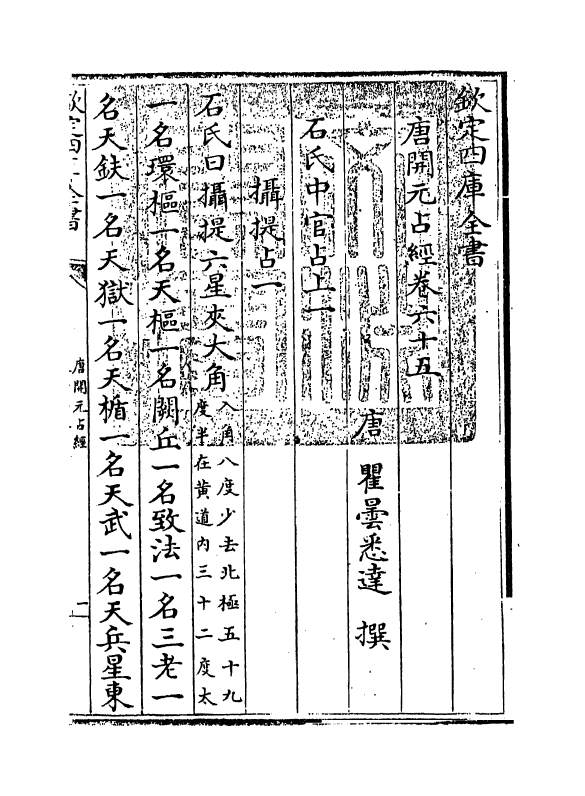 欽定四庫全書
唐開元占經卷六十五
唐 瞿曇悉達 撰
石氏中官占上一
攝提占一
石氏曰攝提六星夾大角入角八度少去北極五十九度半在黄道內三十二度太
一名環樞一名天樞一名闕丘一名致法一名三老一
名天鈇一名天獄一名天楯一名天武一名天兵星東
欽定四庫全書
唐開元占經
一